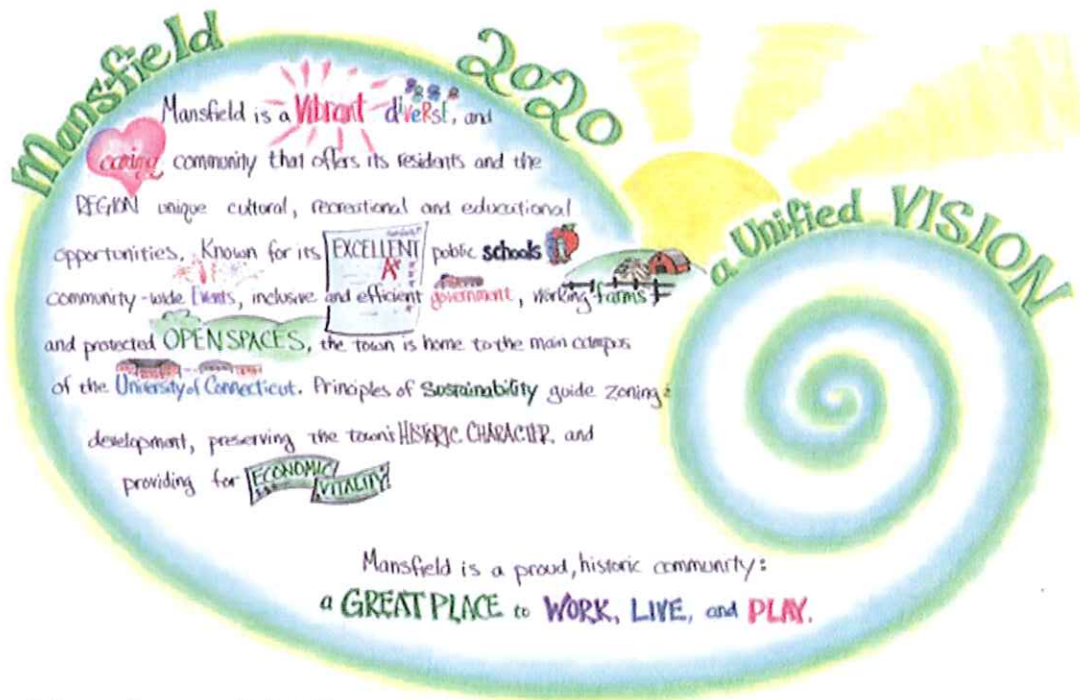 Mansfield 2020
a Unified VISION
Mansfield is a Vibrant diverse, and
caring community that offers its residents and the
REGION unique cultural, recreational and educational
opportunities. Known for its EXCELLENT public schools
A+
community-wide Events, inclusive and efficient government, working farms
and protected OPEN SPACES, the town is home to the main campus
of the University of Connecticut. Principles of Sustainability guide zoning &
development, preserving the town's HISTORIC CHARACTER and
providing for ECONOMIC VITALITY!
Mansfield is a proud, historic community:
a GREAT PLACE to WORK, LIVE, and PLAY.